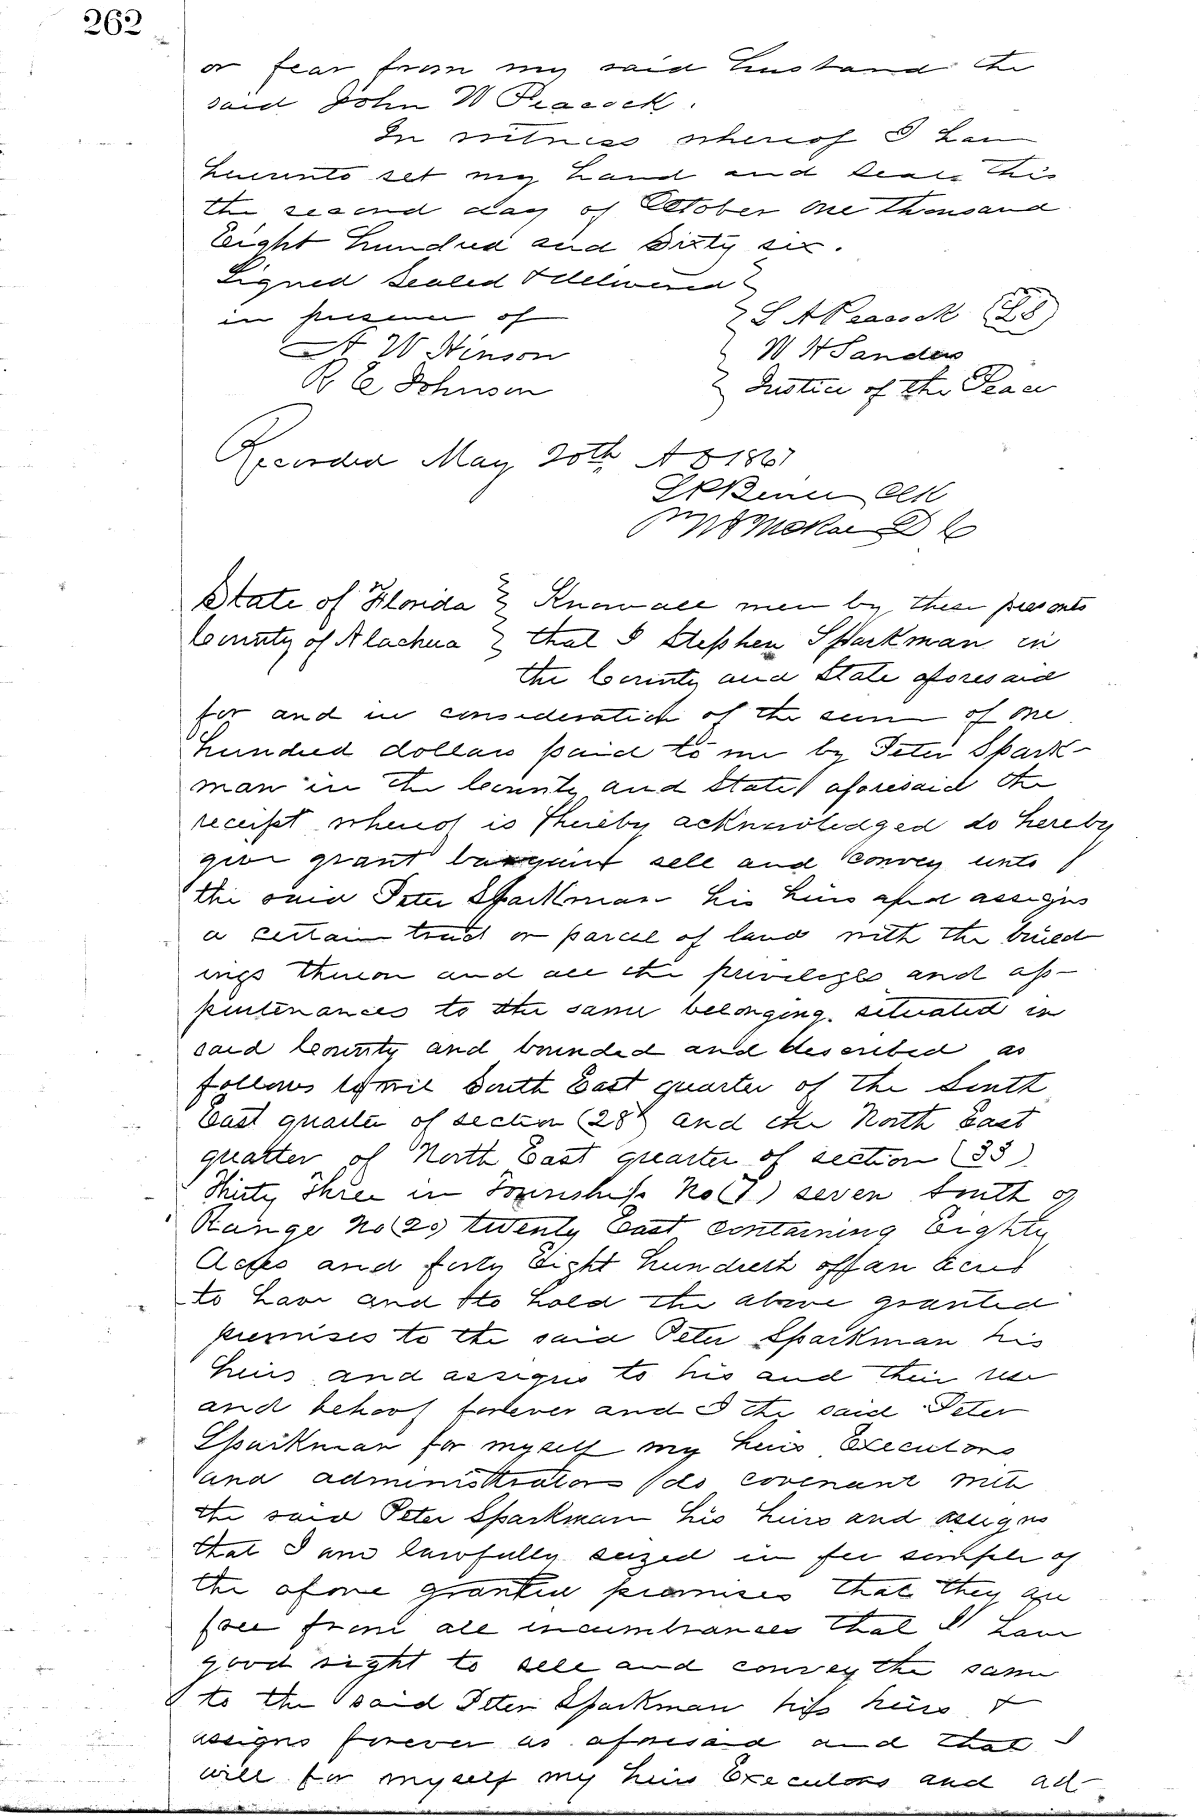 262
or fear from my said husband the
said John W Peacock.
In witness whereof I have
hereunto set my hand and seal this
the second day of October one thousand
Eight hundred and Sixty six.
Signed Sealed & delivered
in presence of S A Peacock (LS)
A W Hinson W H Sanders
R E Johnson Justice of the Peace
Recorded May 20th A D 1867
Clk
D C
State of Florida Know all men by these presents
County of Alachua that I Stephen Sparkman in
the County and State aforesaid
for and in consideration of the sum of one
hundred dollars paid to me by Peter Spark-
man in the County and State aforesaid the
receipt whereof is hereby acknowledged do hereby
give grant bargain sell and convey unto
the said Peter Sparkman his heirs and assigns
a certain tract or parcel of land with the build
ings thereon and all the privileges and ap-
purtenances to the same belonging. situated in
said County and bounded and described as
follows to wit South East quarter of the South
East quarter of section (28) and the North East
quarter of North East quarter of section (33)
Thirty Three in Township No (7) seven South of
Range No (20) twenty East containing Eighty
Acres and forty Eight hundreth of an acre
to have and to hold the above granted
premises to the said Peter Sparkman his
heirs and assigns to his and their use
and behoof forever and I the said Peter
Sparkman for myself my heirs Executors
and administrators do covenant with
the said Peter Sparkman his heirs and assigns
that I am lawfully seized in fee simple of
the afore granted premises that they are
free from all incumbrances that I have
good right to sell and convey the same
to the said Peter Sparkman his heirs &
assigns forever as aforesaid and that I
will for myself my heirs Executors and ad-